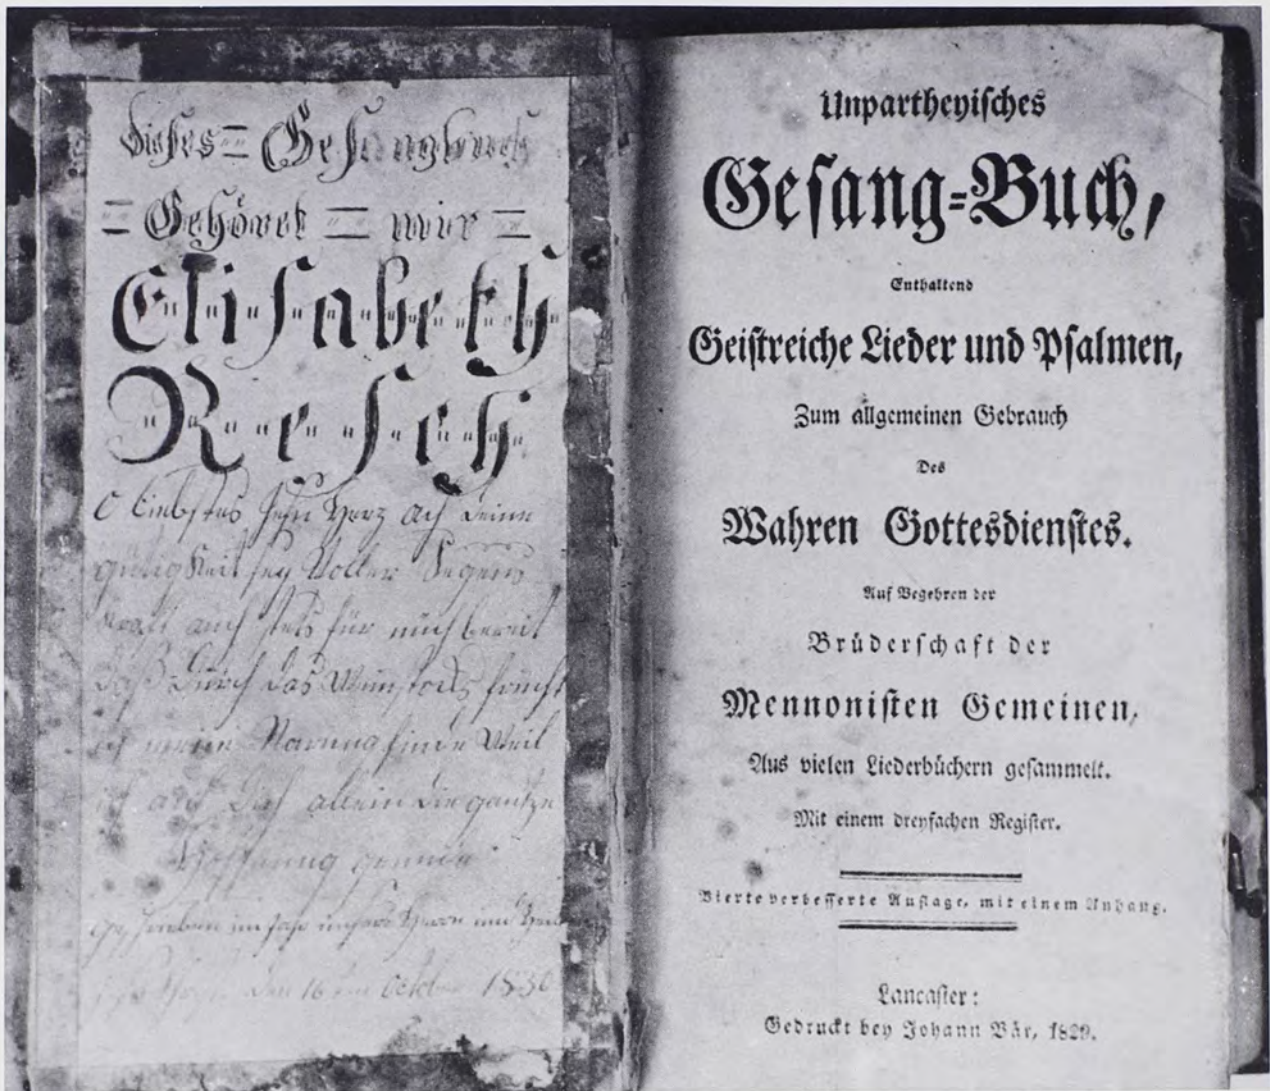 Dieses = Gesangbuch
= Gehöret = mir =
Elisabeth
Resch
O liebstes Jesu Herz ach deine
gütigkeit sey Voller Segens
Krafft auch stets für mich bereit
daß durch das Weinstocks frücht
ich meine Narung finde Weil
ich auf dich allein die gantze
Hoffnung
geschrieben im Jahr unsers Herrn und
den 16 October 1830
Unpartheyisches
Gesang=Buch,
Enthaltend
Geistreiche Lieder und Psalmen,
Zum allgemeinen Gebrauch
Des
Wahren Gottesdienstes.
Auf Begehren der
Brüderschaft der
Mennonisten Gemeinen,
Aus vielen Liederbüchern gesammelt.
Mit einem dreyfachen Register.
Vierte verbesserte Auflage, mit einem Anhang.
Lancaster:
Gedruckt bey Johann Bär, 1829.